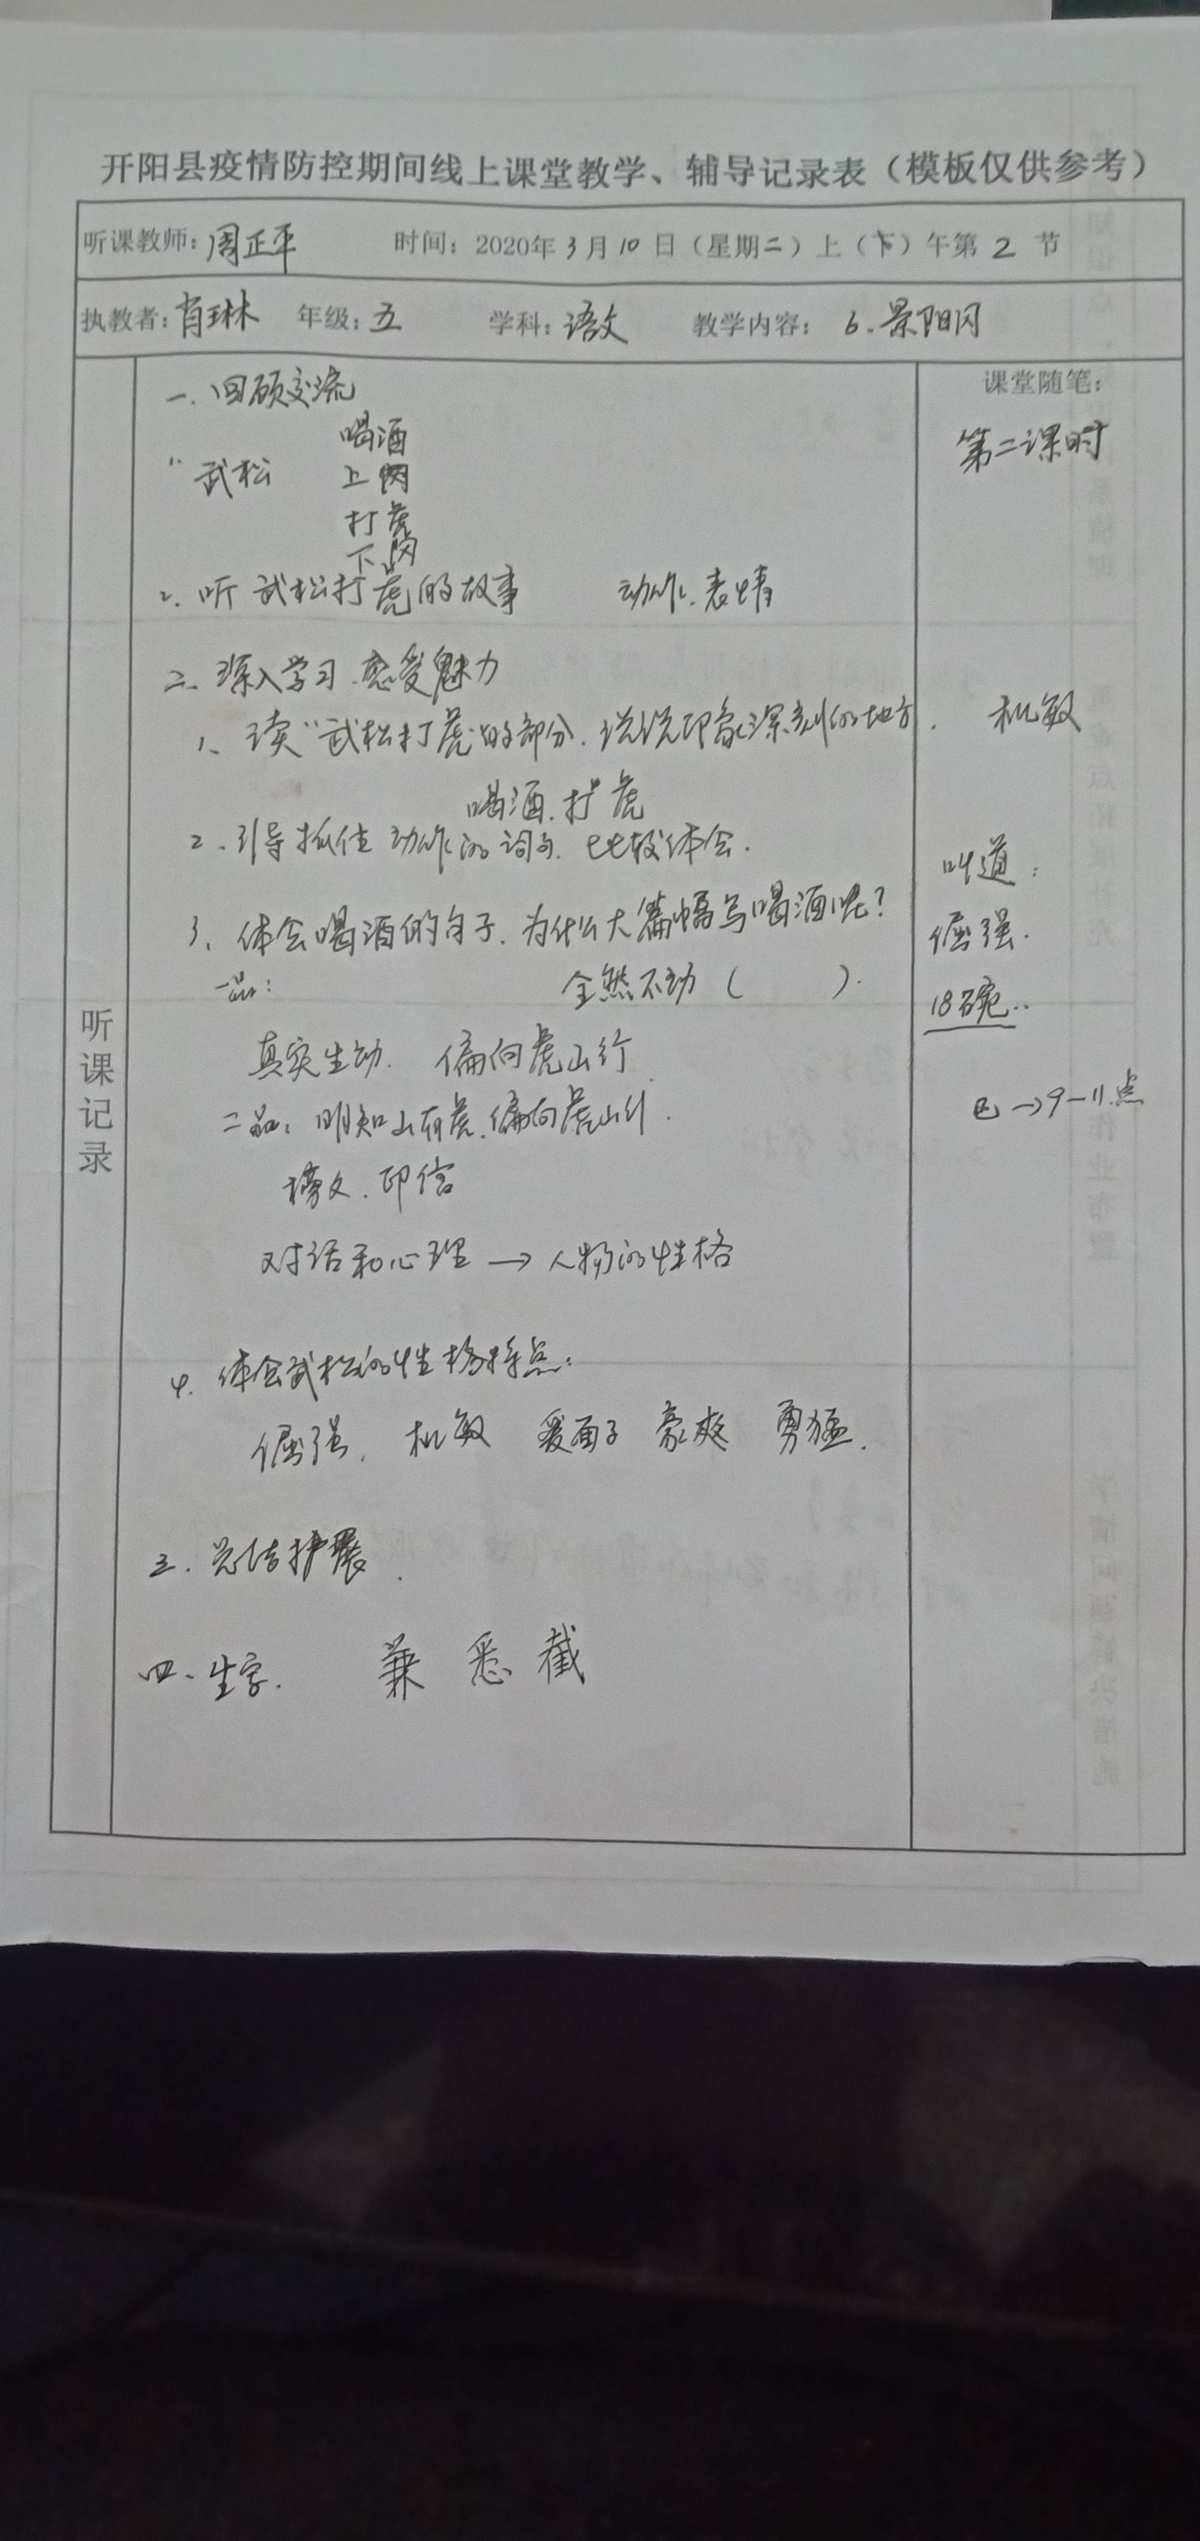 开阳县疫情防控期间线上课堂教学、辅导记录表（模板仅供参考）
听课教师：周正平 时间：2020年3月10日（星期二）上（下）午第2节
执教者：肖琳 年级：五 学科：语文 教学内容：6.景阳冈
课堂随笔：
一、回顾交流
喝酒
第二课时
1、武松 上冈
打虎
下冈
2、听武松打虎的故事 动作、表情
二、深入学习、感受魅力
1、读"武松打虎"的部分、说说印象深刻的地方. 机敏
喝酒、打虎
2、引导抓住动作的词句、比较体会.
叫道：
3、体会喝酒的句子、为什么大篇幅写喝酒呢？
倔强.
一品： 全然不动（ ）.
18碗..
听课记录
真实生动. 偏向虎山行
→9-11点
二品：明知山有虎、偏向虎山行.
榜文、印信
对话和心理→人物的性格
4、体会武松的性格特点：
倔强、机敏 爱面子 豪爽 勇猛.
三、总结扩展.
四、生字. 兼 悉 截